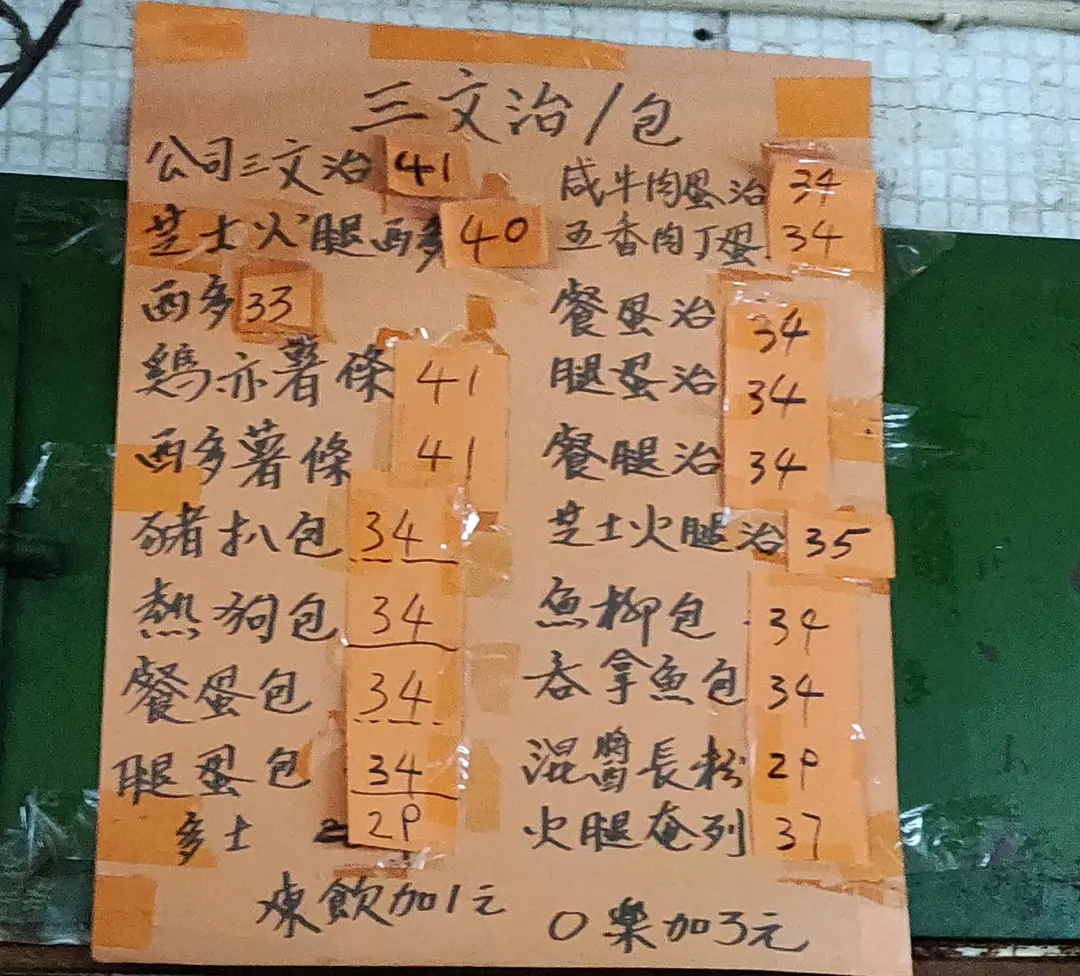 三文治/包
公司三文治 41
芝士火腿西多 40
西多 33
鷄亦薯條 41
西多薯條 41
豬扒包 34
熱狗包 34
餐蛋包 34
腿蛋包 34
多士 29
咸牛肉蛋治 34
五香肉丁蛋 34
餐蛋治 34
腿蛋治 34
餐腿治 34
芝士火腿治 35
魚柳包 34
吞拿魚包 34
混醬長粉 29
火腿奄列 37
凍飲加1元
O樂加3元